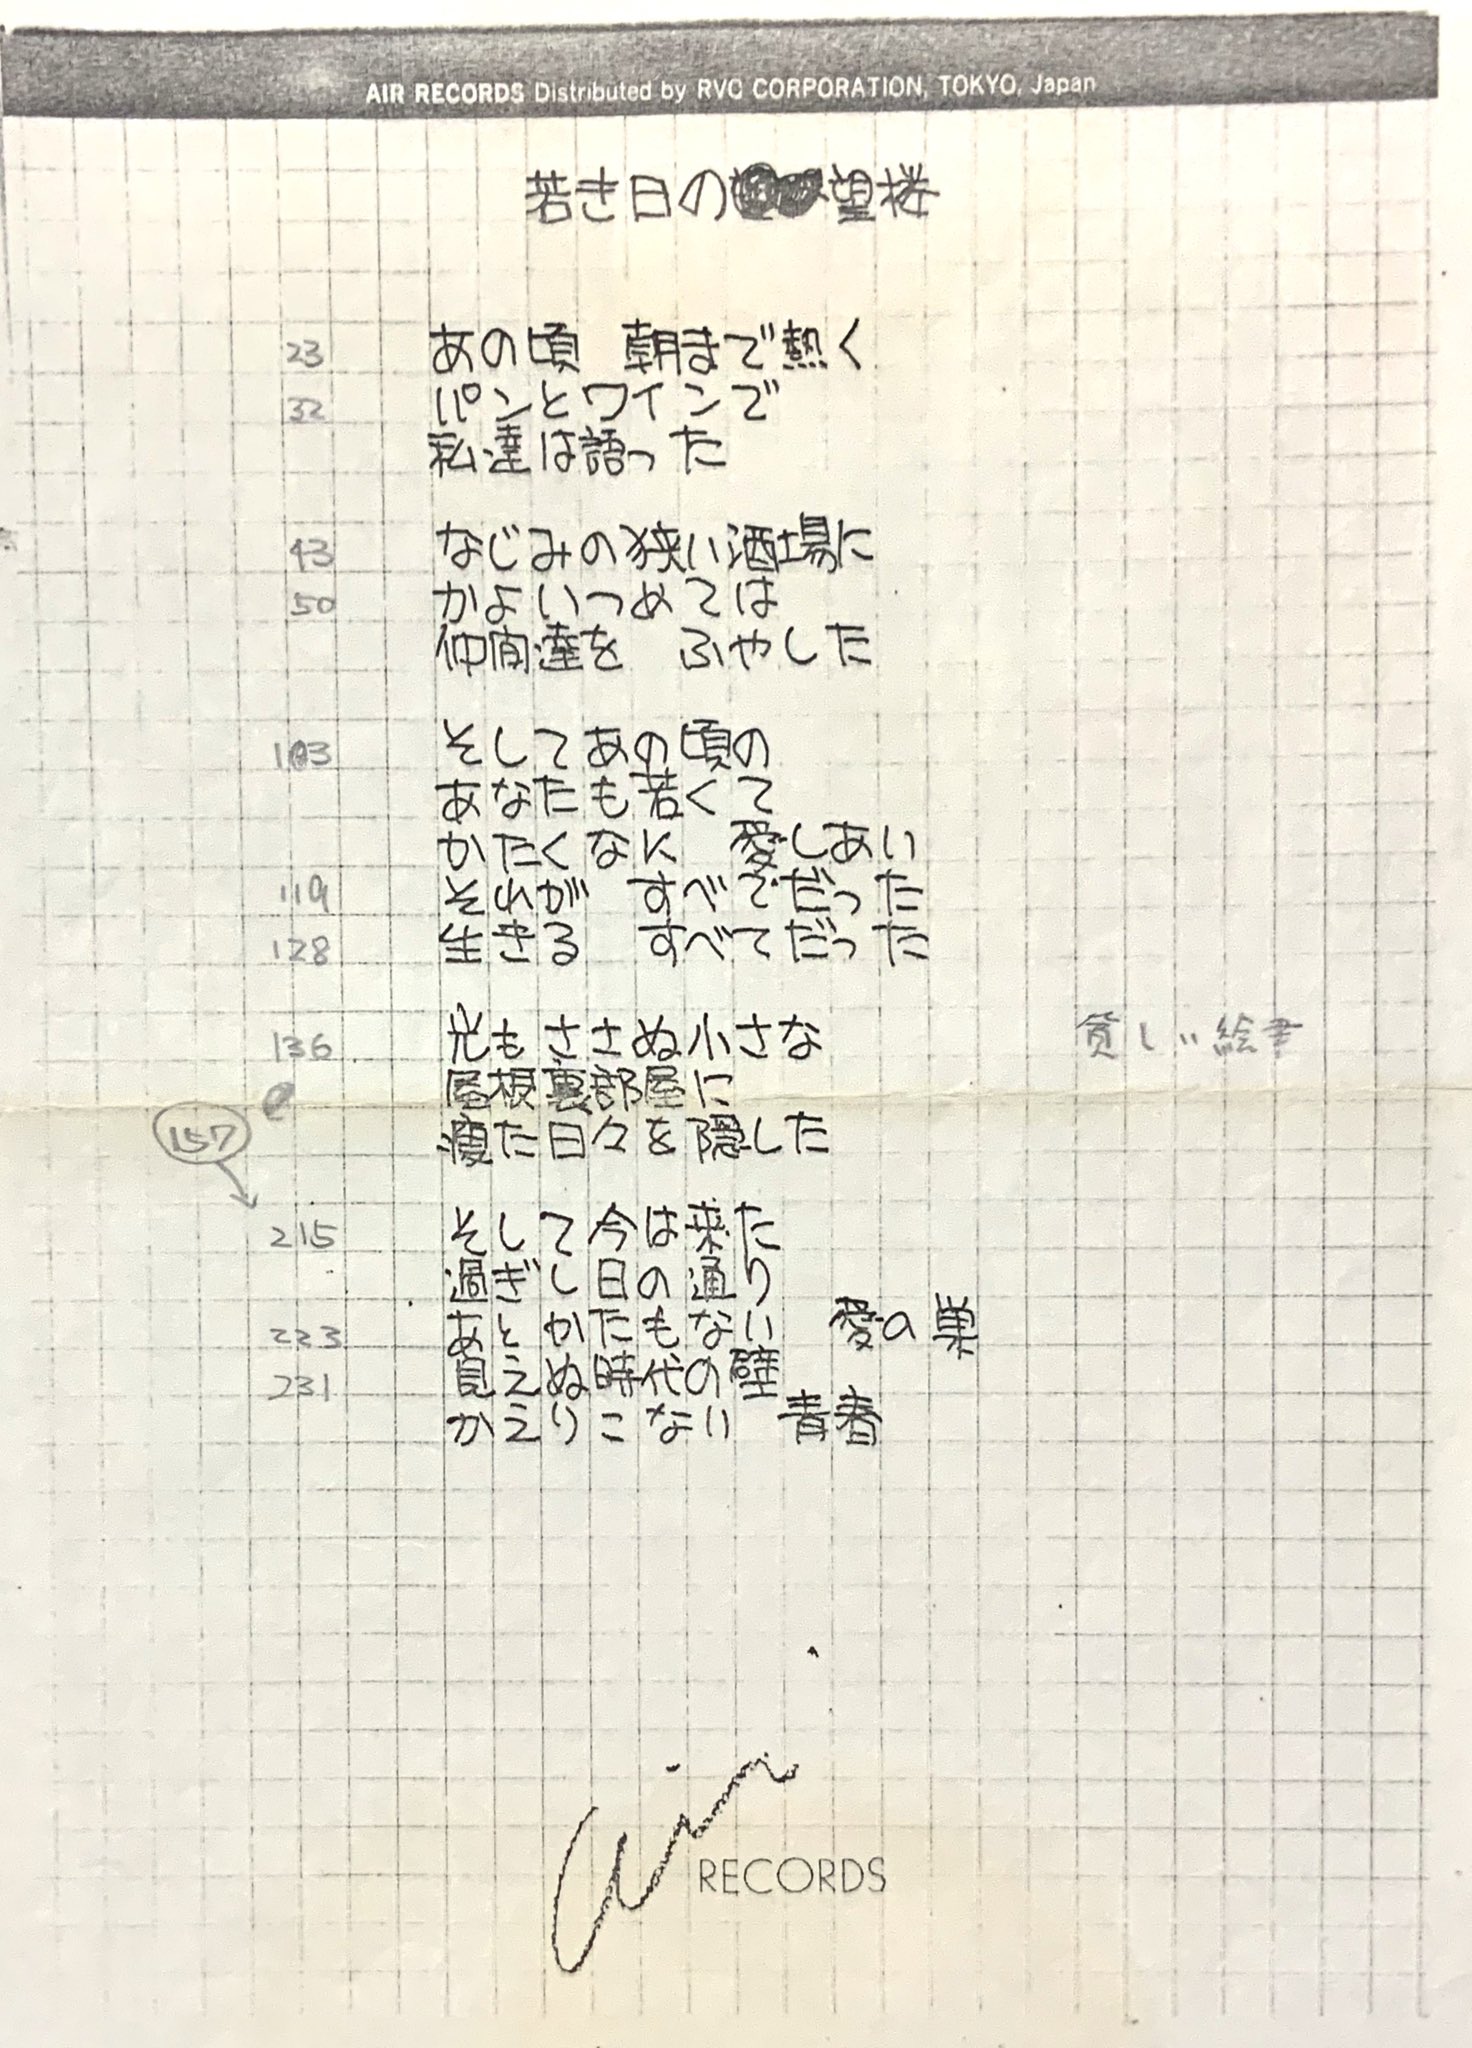 AIR RECORDS Distributed by RVC CORPORATION, TOKYO, Japan
若き日の望楼
23 あの頃 朝まで熱く
32 パンとワインで
私達は語った
43 なじみの狭い酒場に
50 かよいつめては
仲間達を ふやした
103 そしてあの頃の
あなたも若くて
かたくなに 愛しあい
119 それが すべてだった
128 生きる すべてだった
136 光もささぬ小さな 貧しい絵
屋根裏部屋に
157 瘦た日々を隠した
215 そして今は来た
過ぎし日の通り
223 あとかたもない 愛の巣
231 見えぬ時代の壁
かえりこない 青春
air RECORDS